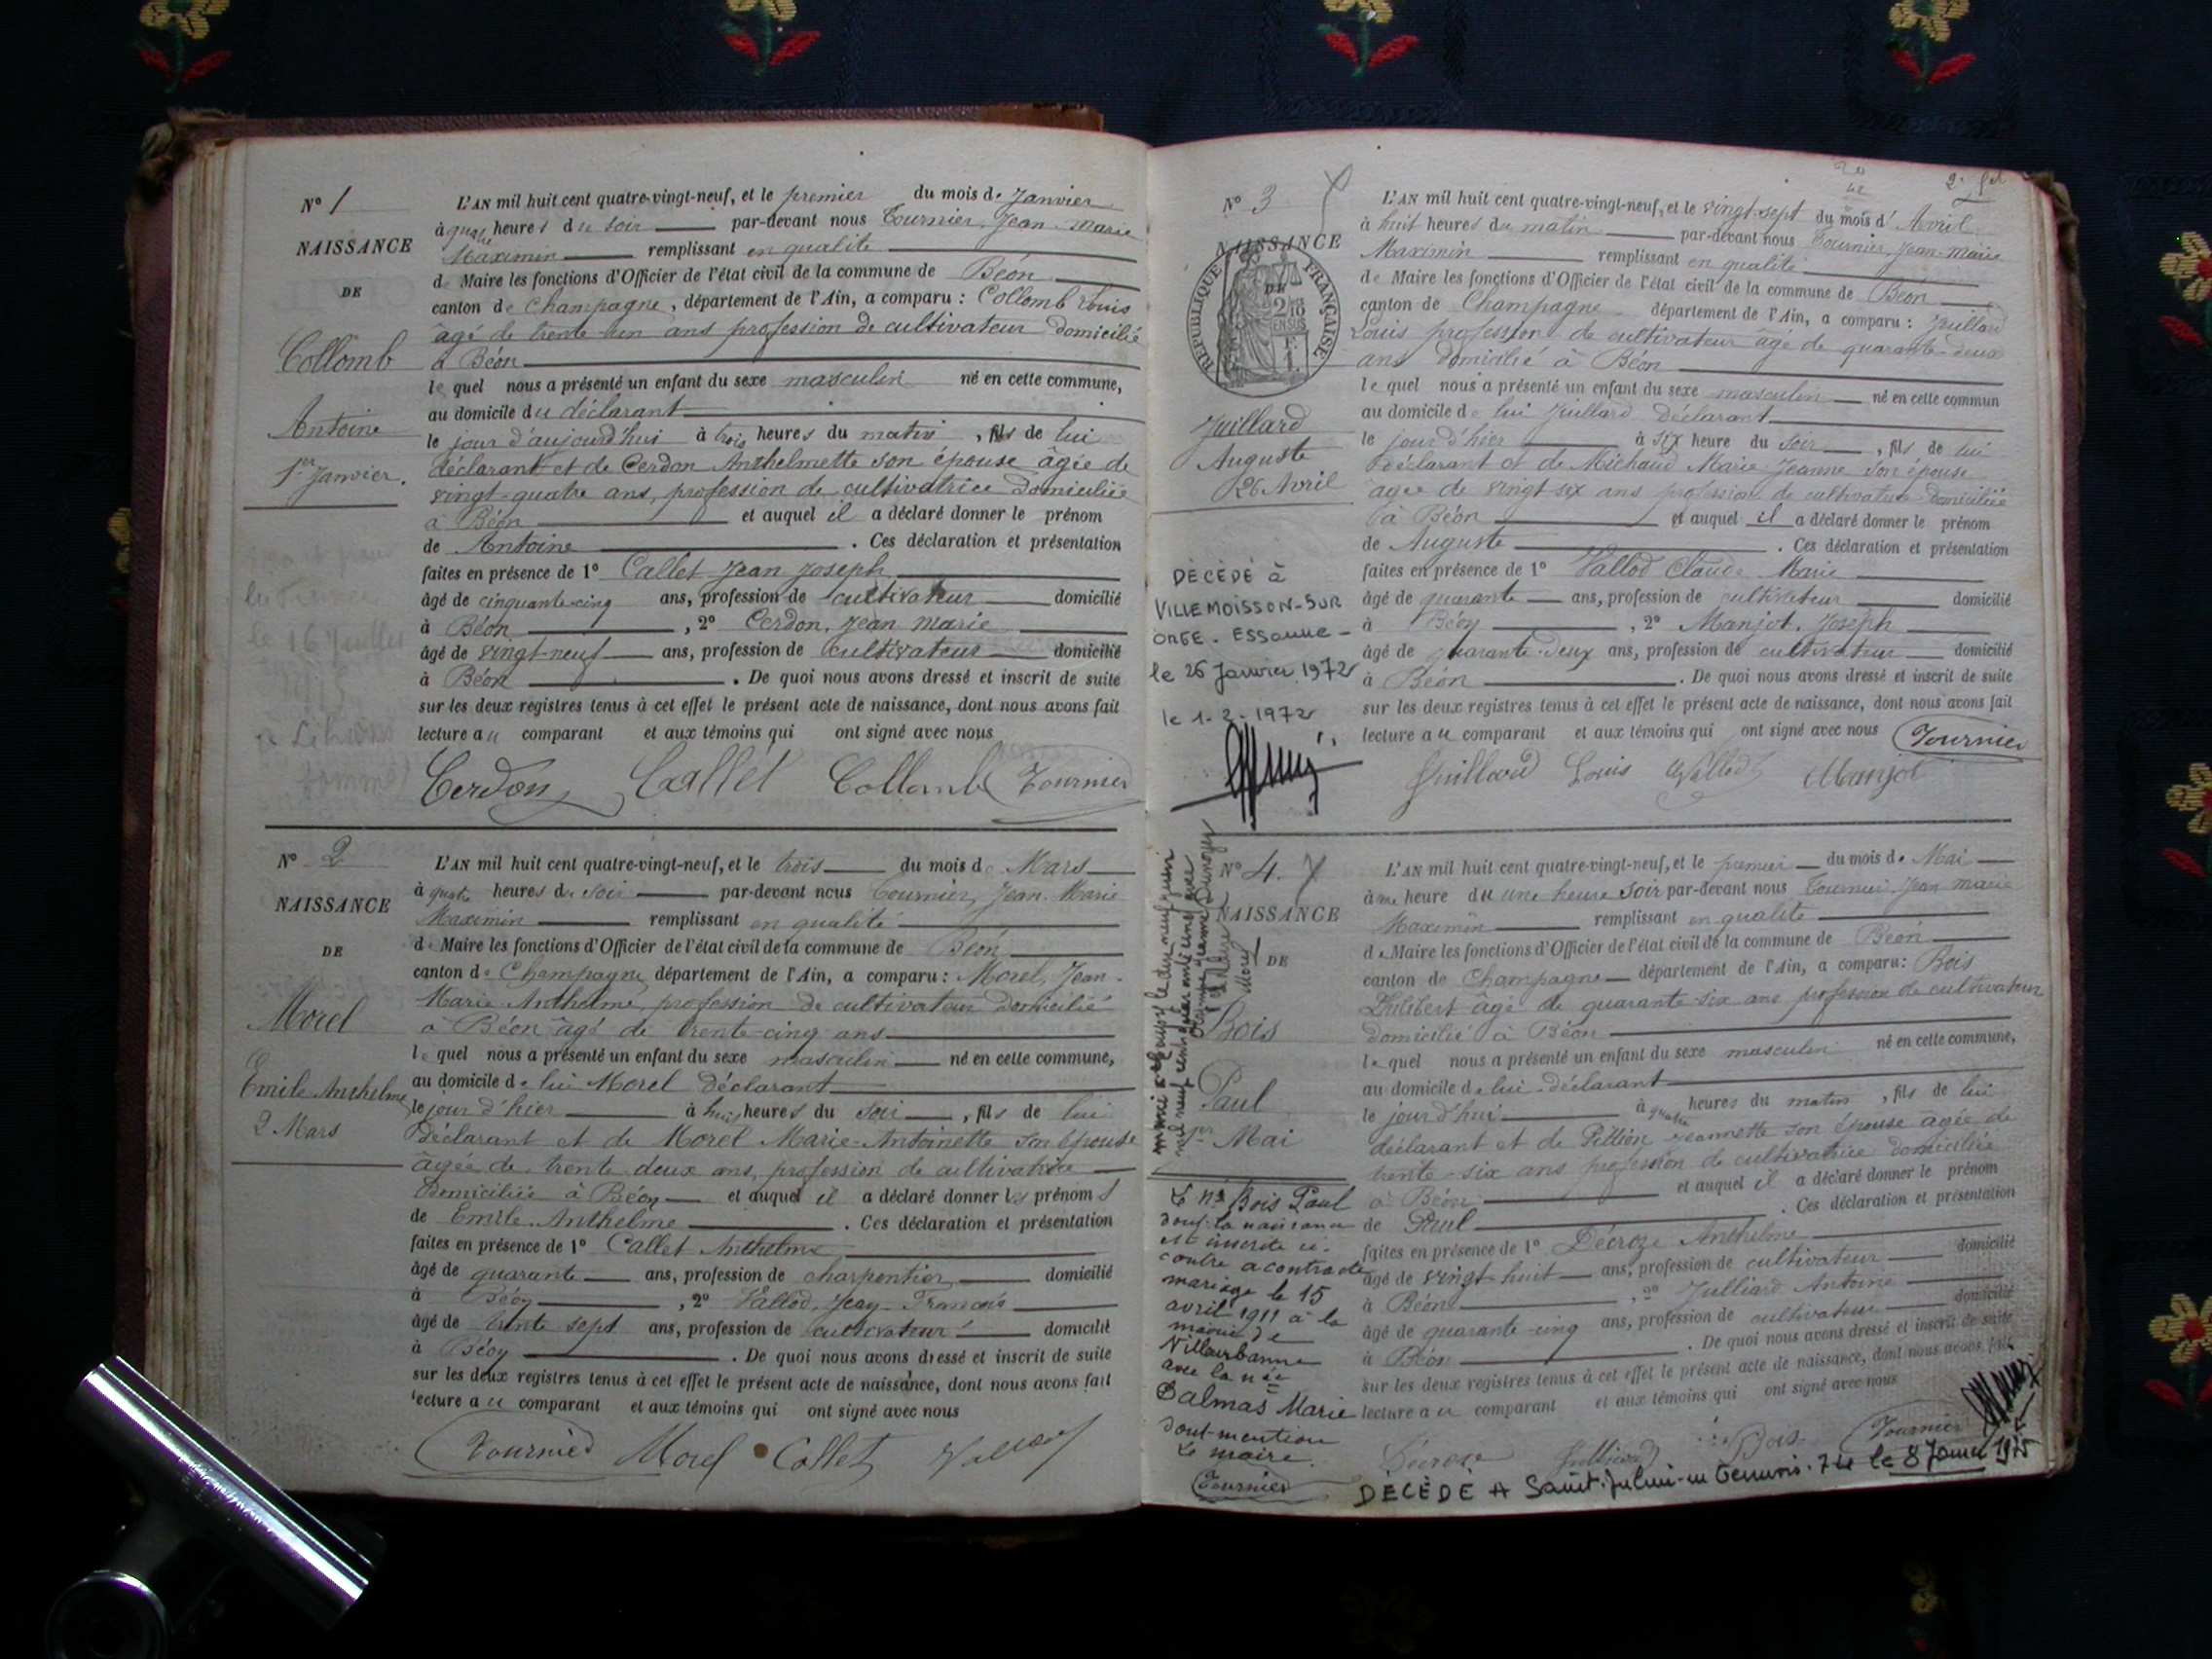 N° 1
NAISSANCE
DE
Collomb
Antoine
1er Janvier.
L'AN mil huit cent quatre-vingt-neuf, et le premier du mois de Janvier
à quatre heures du soir par-devant nous Tournier, Jean-Marie
Maximin remplissant en qualité
de Maire les fonctions d'Officier de l'état civil de la commune de Béon
canton de Champagne, département de l'Ain, a comparu : Collomb Louis
âgé de trente-un ans profession de cultivateur domicilié
à Béon
lequel nous a présenté un enfant du sexe masculin né en cette commune,
au domicile du déclarant
le jour d'aujourd'hui à trois heures du matin, fils de lui
déclarant et de Cerdon Anthelmette son épouse âgée de
vingt-quatre ans, profession de cultivatrice domiciliée
à Béon et auquel il a déclaré donner le prénom
de Antoine . Ces déclaration et présentation
faites en présence de 1° Callet Jean Joseph
âgé de cinquante-cinq ans, profession de cultivateur domicilié
à Béon , 2° Cerdon, Jean Marie
âgé de vingt-neuf ans, profession de cultivateur domicilié
à Béon . De quoi nous avons dressé et inscrit de suite
sur les deux registres tenus à cet effet le présent acte de naissance, dont nous avons fait
lecture au comparant et aux témoins qui ont signé avec nous
Cerdon Callet Collomb Tournier
le 16 Juillet
N° 2
NAISSANCE
DE
Morel
Emile Anthelme
2 Mars
L'AN mil huit cent quatre-vingt-neuf, et le trois du mois de Mars
à quatre heures du soir par-devant nous Tournier, Jean-Marie
Maximin remplissant en qualité
de Maire les fonctions d'Officier de l'état civil de la commune de Béon
canton de Champagne, département de l'Ain, a comparu : Morel, Jean-
Marie Anthelme, profession de cultivateur domicilié
à Béon âgé de trente-cinq ans
lequel nous a présenté un enfant du sexe masculin né en cette commune,
au domicile de lui Morel déclarant
le jour d'hier à huit heures du soir, fils de lui
déclarant et de Morel Marie-Antoinette son épouse
âgée de trente deux ans, profession de cultivatrice
domiciliée à Béon et auquel il a déclaré donner les prénoms
de Emile Anthelme . Ces déclaration et présentation
faites en présence de 1° Callet Anthelme
âgé de quarante ans, profession de charpentier domicilié
à Béon , 2° Vallod, Jean-François
âgé de trente sept ans, profession de cultivateur domicilié
à Béon . De quoi nous avons dressé et inscrit de suite
sur les deux registres tenus à cet effet le présent acte de naissance, dont nous avons fait
lecture au comparant et aux témoins qui ont signé avec nous
Tournier Morel Callet Vallod
N° 3
NAISSANCE
DE
RÉPUBLIQUE FRANÇAISE
Juillard
Auguste
26 Avril
DÉCÉDÉ à
VILLEMOISSON-SUR
ORGE. ESSONNE
le 26 Janvier 1972
le 1-2-1972
L'AN mil huit cent quatre-vingt-neuf, et le vingt-sept du mois d'Avril
à huit heures du matin par-devant nous Tournier, Jean-Marie
Maximin remplissant en qualité
de Maire les fonctions d'Officier de l'état civil de la commune de Béon
canton de Champagne département de l'Ain, a comparu : Juillard
Louis profession de cultivateur âgé de quarante-deux
ans domicilié à Béon
lequel nous a présenté un enfant du sexe masculin né en cette commun
au domicile de lui Juillard déclarant
le jour d'hier à six heure du soir, fils de lui
déclarant et de Michaud Marie-Jeanne son épouse
âgée de vingt-six ans profession de cultivateur domiciliée
à Béon et auquel il a déclaré donner le prénom
de Auguste . Ces déclaration et présentation
faites en présence de 1° Vallod Claude Marie
âgé de quarante ans, profession de cultivateur domicilié
à Béon , 2° Manjot, Joseph
âgé de quarante-deux ans, profession de cultivateur domicilié
à Béon . De quoi nous avons dressé et inscrit de suite
sur les deux registres tenus à cet effet le présent acte de naissance, dont nous avons fait
lecture au comparant et aux témoins qui ont signé avec nous Tournier
Juillard Louis Vallod Manjot
N° 4
NAISSANCE
DE
Bois
Paul
1er Mai
Le né Bois Paul
dont la naissance
est inscrite ci-
contre a contracté
mariage le 15
avril 1911 à la
mairie de
Villeurbanne
avec la née
Balmas Marie
dont mention
Le maire.
Tournier
L'AN mil huit cent quatre-vingt-neuf, et le premier du mois de Mai
à une heure du une heure soir par-devant nous Tournier, Jean marie
Maximin remplissant en qualité
de Maire les fonctions d'Officier de l'état civil de la commune de Béon
canton de Champagne département de l'Ain, a comparu: Bois
Philibert âgé de quarante-six ans profession de cultivateur
domicilié à Béon
lequel nous a présenté un enfant du sexe masculin né en cette commune,
au domicile de lui déclarant
le jour d'hui à quatre heures du matin, fils de lui
déclarant et de Pillion Jeannette son épouse âgée de
trente-six ans profession de cultivatrice domiciliée
à Béon et auquel il a déclaré donner le prénom
de Paul . Ces déclaration et présentation
faites en présence de 1° Décroze Anthelme
âgé de vingt-huit ans, profession de cultivateur domicilié
à Béon , 2° Julliard Antoine
âgé de quarante-cinq ans, profession de cultivateur domicilié
à Béon . De quoi nous avons dressé et inscrit de suite
sur les deux registres tenus à cet effet le présent acte de naissance, dont nous avons fait
lecture au comparant et aux témoins qui ont signé avec nous
Décroze Julliard Bois Tournier
DÉCÉDÉ A Saint-Julien-en Genevois. 74 le 8 Janvier 1975